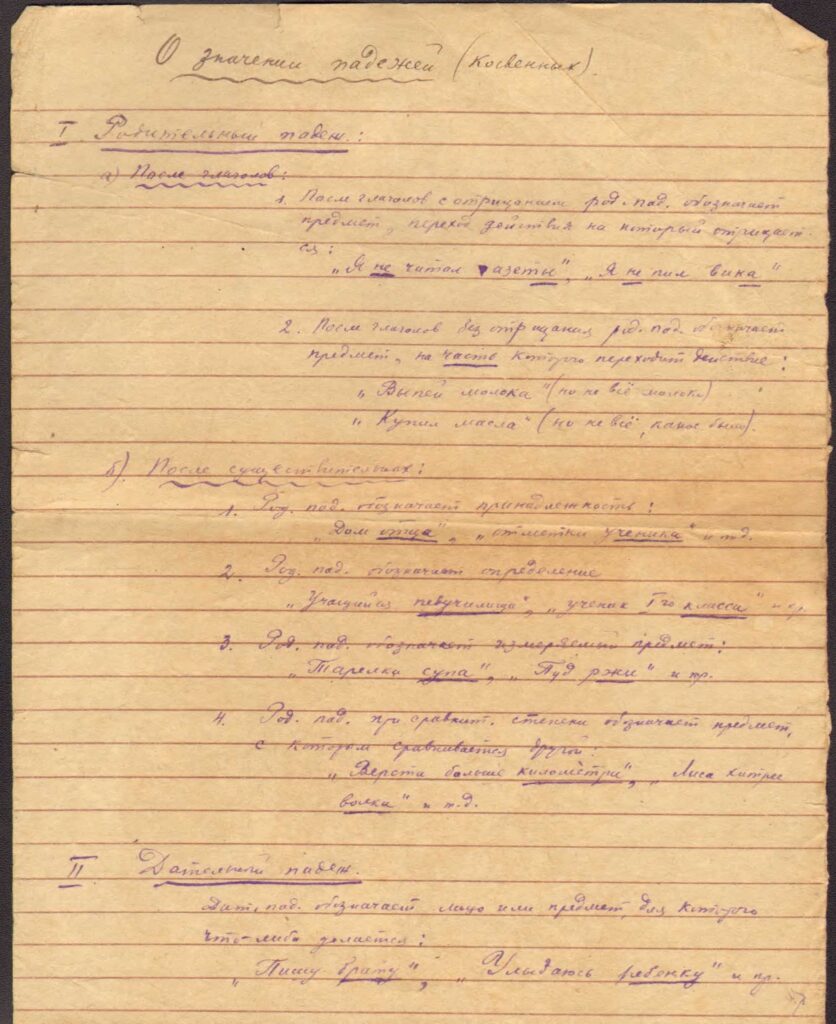 О значении падежей (косвенных).
I Родительный падеж.:
а) После глаголов:
1. После глаголов с отрицанием род. пад. обозначает
предмет, переход действия на который отрицает-
ся:
„Я не читал газеты", „Я не пил вина"
2. После глаголов без отрицания род. пад. обозначает
предмет, на часть которого переходит действие:
„Выпей молока" (но не всё молоко)
„Купил масла" (но не всё, какое было).
б). После существительных:
1. Род. пад. обозначает принадлежность:
„Дом отца", „отметки ученика" и т.д.
2. Род. пад. обозначает определение
„Учащийся певучилища", „ученик I го класса" и пр.
3. Род. пад. обозначает измеряемый предмет:
„Тарелка супа", „Пуд ржи" и пр.
4. Род. пад. при сравнит. степени обозначает предмет,
с котором сравнивается другой:
„Верста больше километра", „Лиса хитрее
волка" и т.д.
II Дательный падеж.
Дат. пад. обозначает лицо или предмет, для которого
что-либо делается:
„Пишу брату", „Улыбаюсь ребенку" и пр.